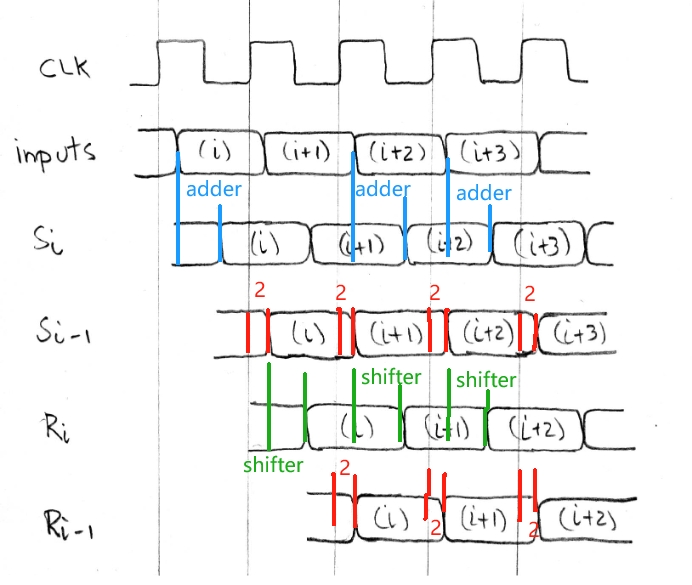 CLK
inputs (i) (i+1) (i+2) (i+3)
adder adder adder
Si (i) (i+1) (i+2) (i+3)
2 2 2 2
Si-1 (i) (i+1) (i+2) (i+3)
shifter shifter
Ri (i) (i+1) (i+2)
shifter 2
Ri-1 (i) (i+1) (i+2)
2 2